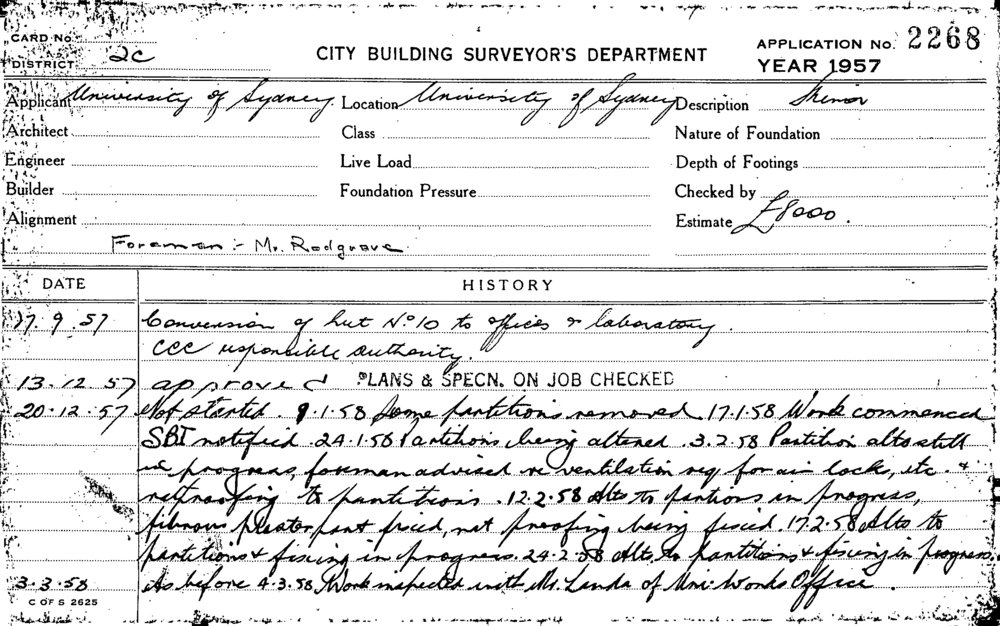 CARD No.
DISTRICT 2C
CITY BUILDING SURVEYOR'S DEPARTMENT
APPLICATION No. 2268
YEAR 1957
Applicant University of Sydney Location University of Sydney Description
Architect Class Nature of Foundation
Engineer Live Load Depth of Footings
Builder Foundation Pressure Checked by
Alignment Estimate £8000.
Foreman :- Mr. Redgrave
DATE HISTORY
17.9.57 Conversion of hut No 10 to offices & laboratory.
CCC responsible authority.
13.12.57 approved PLANS & SPECN. ON JOB CHECKED
20.12.57 Not started. 9.1.58 Some partitions removed 17.1.58 Work commenced
SBI notified. 24.1.58 Partitions being altered. 3.2.58 Partition alts still
in progress, foreman advised re ventilation req. for air lock, etc. &
ratproofing to partitions. 12.2.58 Alts to partions in progress,
fibrous plaster part fixed, rat proofing being fixed. 17.2.58 Alts to
partitions & fixing in progress. 24.2.58 Alts. to partitions & fixing in progress.
3.3.58 As before 4.3.58, Work inspected with Mr. Landa of Uni: Works Office.
C OF S 2625